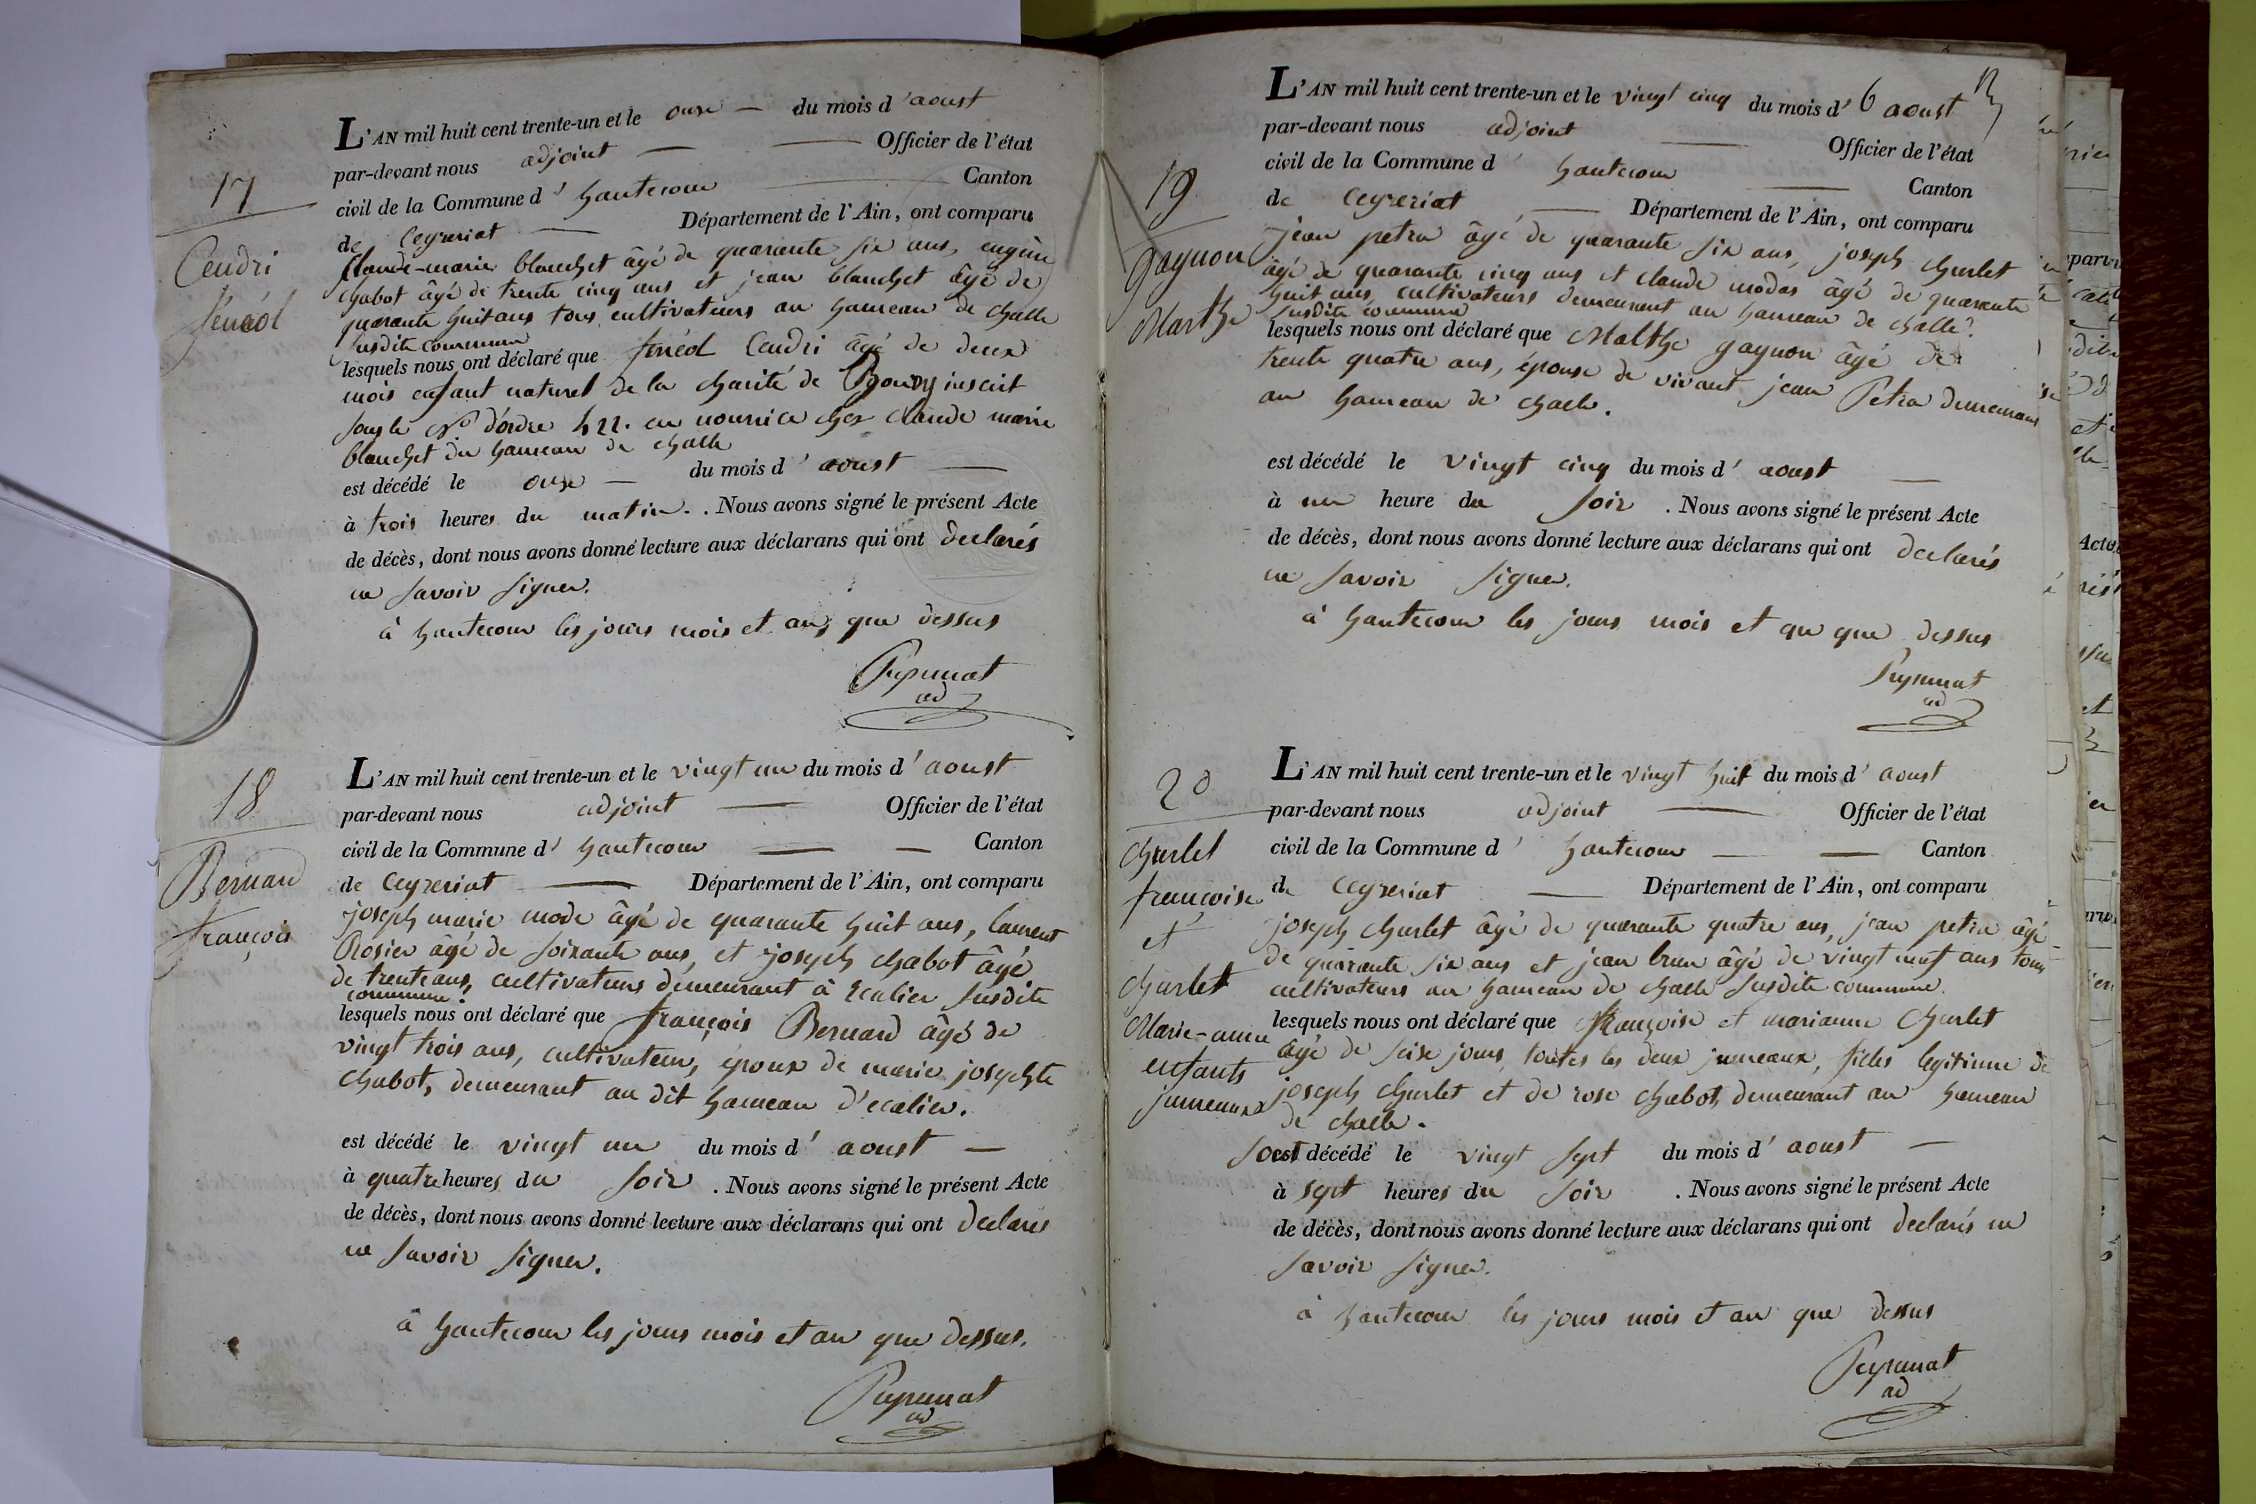 17
Cendri
féréol
L'AN mil huit cent trente-un et le onze — du mois d'aoust
par-devant nous adjoint — — Officier de l'état
civil de la Commune d'hautecour — Canton
de Ceyzeriat — Département de l'Ain, ont comparu
Claude-marie blanchet âgé de quarante six ans, eugène
chabot âgé de trente cinq ans et jean blanchet âgé de
quarante huit ans tous cultivateurs au hameau de challe
susdite commune
lesquels nous ont déclaré que féréol Cendri âgé de deux
mois enfant naturel de la charité de Bourg inscrit
sous le N° d'ordre 422. en nourrice chez Claude marie
blanchet du hameau de challe
est décédé le onze — du mois d'aoust —
à trois heures du matin. . Nous avons signé le présent Acte
de décès, dont nous avons donné lecture aux déclarans qui ont declarés
ne savoir signer.
à hautecour les jours mois et an que dessus
ad
18
Bernard
françois
L'AN mil huit cent trente-un et le vingt un du mois d'aoust
par-devant nous adjoint — Officier de l'état
civil de la Commune d'hautecour — — Canton
de Ceyzeriat — Département de l'Ain, ont comparu
joseph marie mode âgé de quarante huit ans, laurent
Rosier agé de soixante ans, et joseph chabot âgé
de trente ans, cultivateurs demeurant à Ecalier susdite
commune.
lesquels nous ont déclaré que françois Bernard âgé de
vingt trois ans, cultivateur, époux de marie josephte
chabot, demeurant au dit hameau d'ecalier.
est décédé le vingt un du mois d'aoust —
à quatre heures du soir . Nous avons signé le présent Acte
de décès, dont nous avons donné lecture aux déclarans qui ont declarés
ne savoir signer.
à hautecour les jours mois et an que dessus.
ad
19
gagnon
Marthe
L'AN mil huit cent trente-un et le vingt cinq du mois d'6 aoust
par-devant nous adjoint — Officier de l'état
civil de la Commune d'hautecour — Canton
de Ceyzeriat — Département de l'Ain, ont comparu
jean petra âgé de quarante six ans, joseph churlet
âgé de quarante cinq ans et claude modas âgé de quarante
huit ans, cultivateurs demeurant au hameau de challe
susdite commune
lesquels nous ont déclaré que Malthe gagnon âgé de
trente quatre ans, épouse de vivant jean Petra demeurant
au hameau de challe.
est décédé le vingt cinq du mois d'aoust —
à une heure du soir . Nous avons signé le présent Acte
de décès, dont nous avons donné lecture aux déclarans qui ont declarés
ne savoir signer.
à hautecour les jours mois et an que dessus
ad
20
Churlet
françoise
et
Churlet
Marie-anne
enfants
jumeaux
L'AN mil huit cent trente-un et le vingt huit du mois d'aoust
par-devant nous adjoint — Officier de l'état
civil de la Commune d'hautecour — — Canton
de Ceyzeriat — Département de l'Ain, ont comparu
joseph churlet âgé de quarante quatre ans, jean petra âgé
de quarante six ans et jean brun âgé de vingt neuf ans tous
cultivateurs au hameau de challe susdite commune.
lesquels nous ont déclaré que françoise et marianne Churlet
âgé de seise jours, toutes les deux jumeaux, filles legitime de
joseph churlet et de rose chabot, demeurant au hameau
de challe.
sont décédé le vingt sept du mois d'aoust —
à sept heures du soir . Nous avons signé le présent Acte
de décès, dont nous avons donné lecture aux déclarans qui ont declarés ne
savoir signer.
à hautecour les jours mois et an que dessus
ad